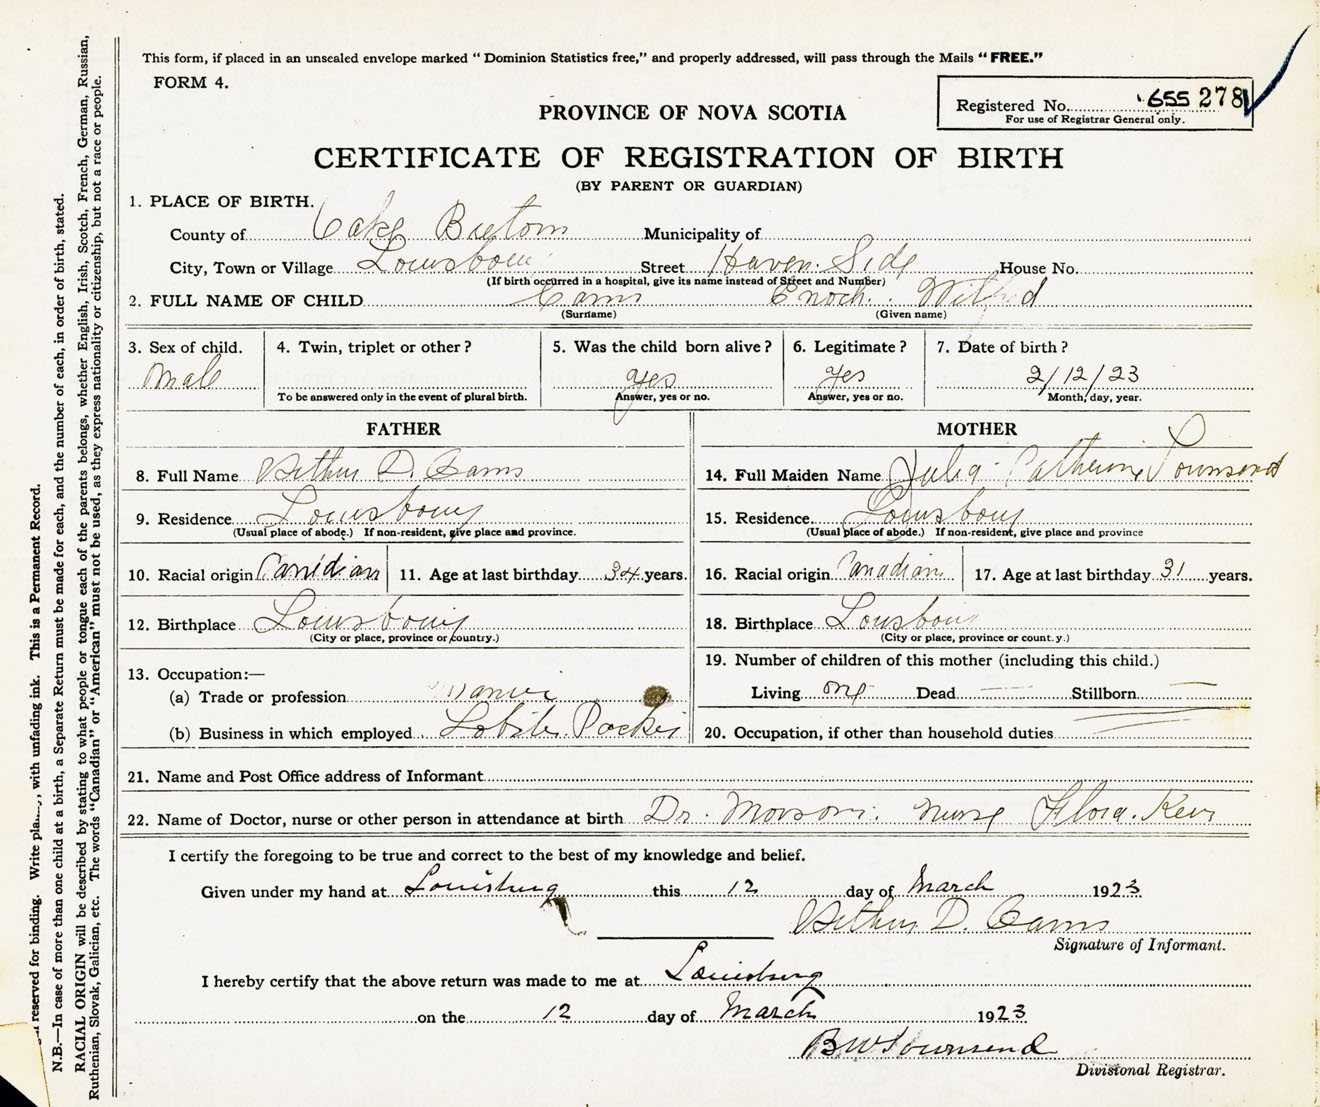 This form, if placed in an unsealed envelope marked " Dominion Statistics free," and properly addressed, will pass through the Mails " FREE."
FORM 4.
Registered No. 655 278
For use of Registrar General only.
PROVINCE OF NOVA SCOTIA
CERTIFICATE OF REGISTRATION OF BIRTH
(BY PARENT OR GUARDIAN)
1. PLACE OF BIRTH.
County of Cake Breton Municipality of
City, Town or Village Louisbourg Street Haven Side House No.
(If birth occurred in a hospital, give its name instead of Street and Number)
2. FULL NAME OF CHILD Cann Enoch Wilfred
(Surname) (Given name)
3. Sex of child. 4. Twin, triplet or other ? 5. Was the child born alive ? 6. Legitimate ? 7. Date of birth ?
Male yes yes 2/12/23
To be answered only in the event of plural birth. Answer, yes or no. Answer, yes or no. Month, day, year.
FATHER MOTHER
8. Full Name Arthur D. Cann 14. Full Maiden Name Julia Catherine Townsend
9. Residence Louisbourg 15. Residence Louisbourg
(Usual place of abode.) If non-resident, give place and province. (Usual place of abode.) If non-resident, give place and province
10. Racial origin Canidian 11. Age at last birthday 34 years. 16. Racial origin Canadian 17. Age at last birthday 31 years.
12. Birthplace Louisbourg 18. Birthplace Lousbourg
(City or place, province or country.) (City or place, province or count.y.)
13. Occupation:—
19. Number of children of this mother (including this child.)
(a) Trade or profession
Living one Dead — Stillborn —
(b) Business in which employed Lobster Packer 20. Occupation, if other than household duties
21. Name and Post Office address of Informant
22. Name of Doctor, nurse or other person in attendance at birth Dr. nurse Flora
I certify the foregoing to be true and correct to the best of my knowledge and belief.
Given under my hand at Louisburg this 12 day of March 1923
Arthur D. Cann
Signature of Informant.
I hereby certify that the above return was made to me at Louisburg
on the 12 day of March 1923
B W Townsend
Divisional Registrar.
reserved for binding. Write pla , with unfading ink. This is a Permanent Record.
N.B.—In case of more than one child at a birth, a Separate Return must be made for each, and the number of each, in order of birth, stated.
RACIAL ORIGIN will be described by stating to what people or tongue each of the parents belongs, whether English, Irish, Scotch, French, German, Russian,
Ruthenian, Slovak, Galician, etc. The words "Canadian" or "American" must not be used, as they express nationality or citizenship, but not a race or people.